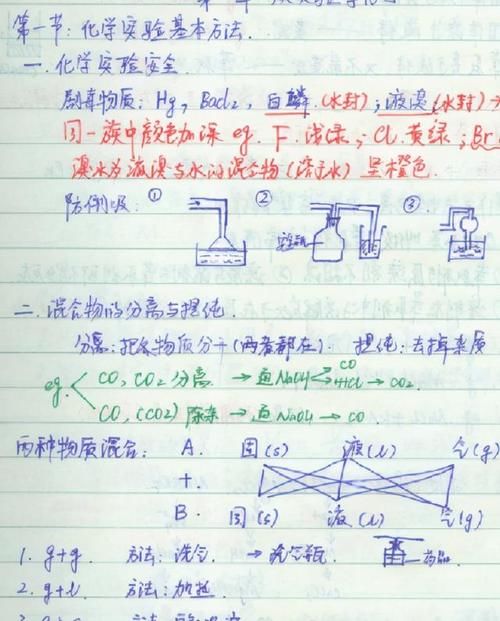 第一节:化学实验基本方法.
一.化学实验安全
剧毒物质:Hg,BaCl2,白磷.(水封);液溴(水封)
同一族中颜色加深 eg. F.浅绿,-Cl.黄绿;Br
溴水为液溴与水的混合物(溶于水)呈橙色.
防倒吸: ① ② ③
安全瓶
二.混合物的分离与提纯.
分离:把各物质分开(两者都在). 提纯:去掉杂质
eg.
CO,CO2 分离 → 通NaOH CO +HCl → CO2.
CO,(CO2) 除杂 → 通NaOH → CO
两种物质混合: A. 固(s) 液(l) 气(g)
+.
B. 固(s) 液(l) 气(g)
1. g+g. 方法:洗气. → 洗气瓶. 药品.
2. g+l 方法:加热.